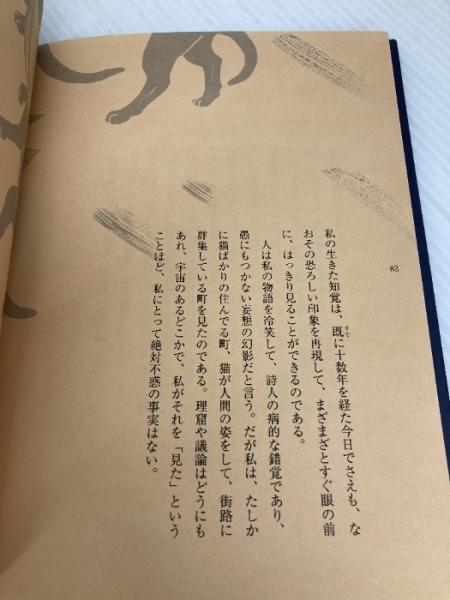 82
私の生きた知覚は、既に十数年を経た今日でさえも、な
すで
おその恐ろしい印象を再現して、まざまざとすぐ眼の前
に、はっきり見ることができるのである。
人は私の物語を冷笑して、詩人の病的な錯覚であり、
愚にもつかない妄想の幻影だと言う。だが私は、たしか
に猫ばかりの住んでる町、猫が人間の姿をして、街路に
群集している町を見たのである。理窟や議論はどうにも
あれ、宇宙のあるどこかで、私がそれを「見た」という
ことほど、私にとって絶対不惑の事実はない。